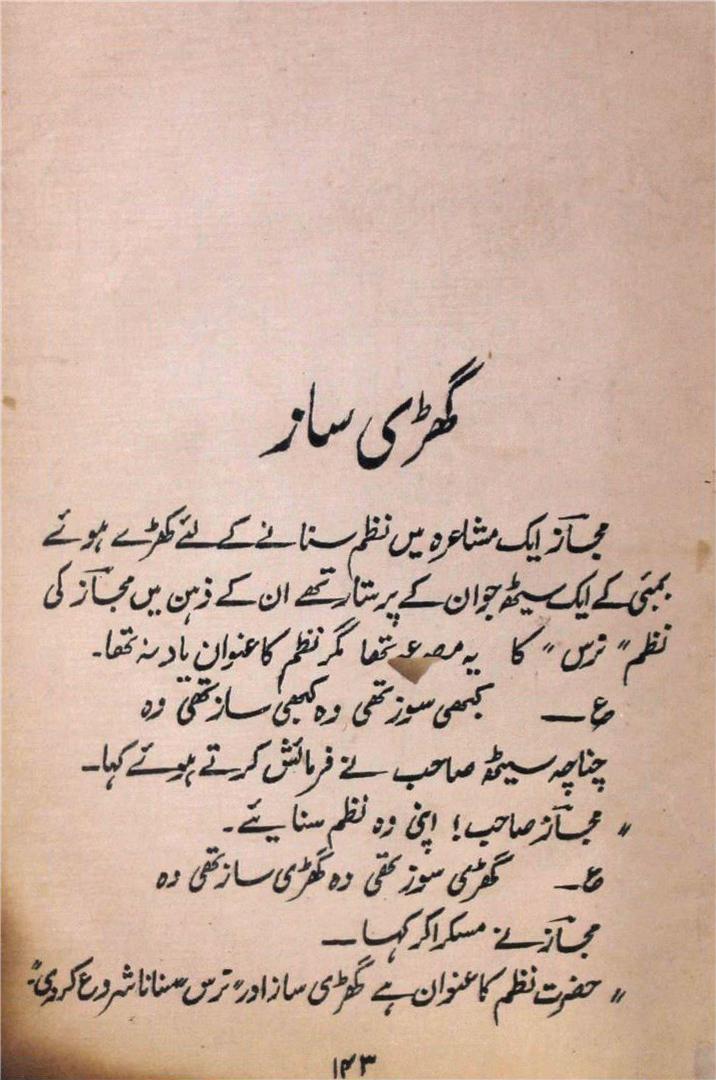 گھڑی ساز
مجاز ایک مشاعرہ میں نظم سنانے کے لئے کھڑے ہوئے
بمبئی کے ایک سیٹھ جو ان کے پرستار تھے ان کے ذہن میں مجاز کی
نظم "نرس" کا یہ مصرعہ تھا مگر نظم کا عنوان یاد نہ تھا۔
ع ــ کبھی سوز تھی وہ کبھی ساز تھی وہ
چناچہ سیٹھ صاحب نے فرمائش کرتے ہوئے کہا۔
" مجاز صاحب! اپنی وہ نظم سنایئے۔
ع ــ گھڑی سوز تھی وہ گھڑی ساز تھی وہ
مجاز نے مسکرا کر کہا ــ
" حضرت نظم کا عنوان ہے گھڑی ساز اور "نرس" سنانا شروع کر دی"۔
۱۴۳